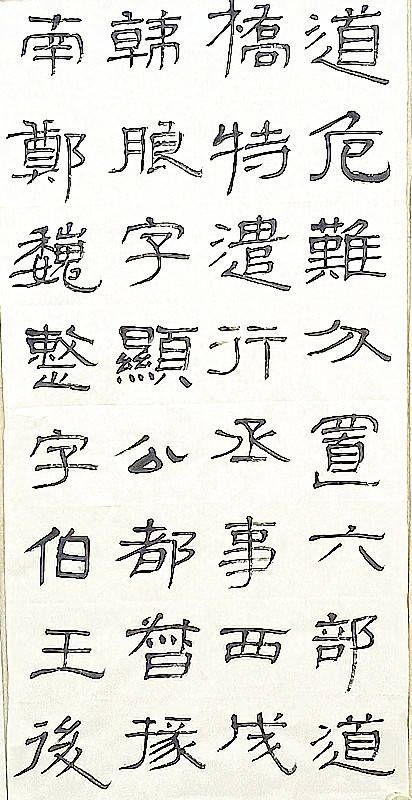 道危難分置六部道
橋特遣行丞事西成
韓朖字顯公都督掾
南鄭魏整字伯王後